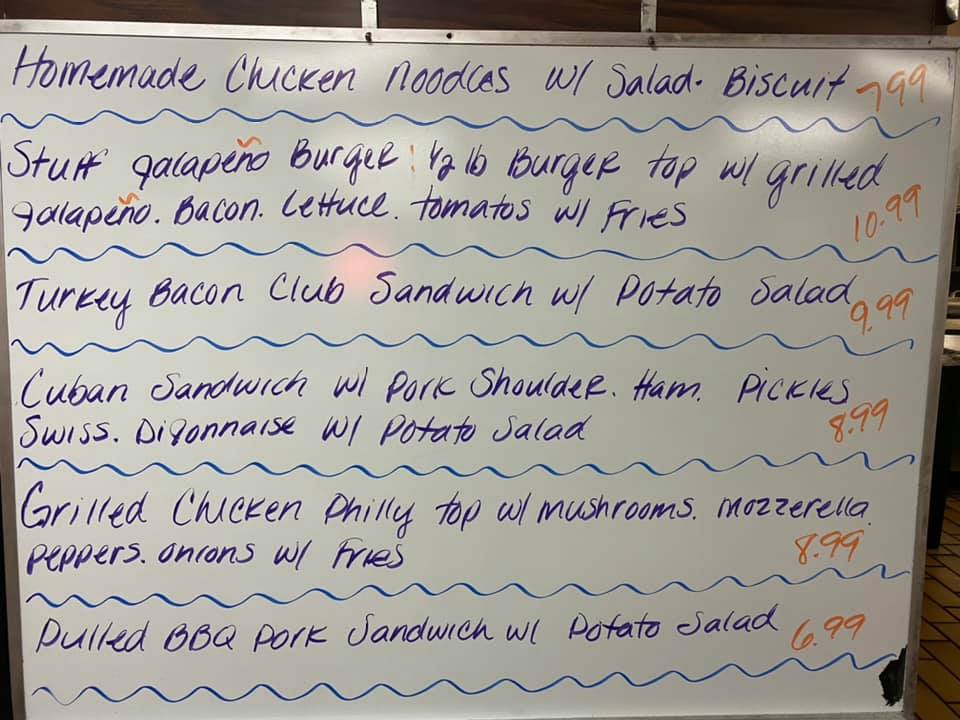 Homemade Chicken Noodles w/ Salad. Biscuit 7.99
Stuff Jalapeño Burger: 1/2 lb Burger top w/ grilled
Jalapeño. Bacon. Lettuce. tomatos w/ Fries 10.99
Turkey Bacon Club Sandwich w/ Potato Salad 9.99
Cuban Sandwich w/ Pork Shoulder. Ham. Pickles
Swiss. Dijonnaise w/ Potato Salad 8.99
Grilled Chicken Philly top w/ mushrooms. mozzerella.
peppers. onions w/ Fries 8.99
Pulled BBQ Pork Sandwich w/ Potato Salad 6.99